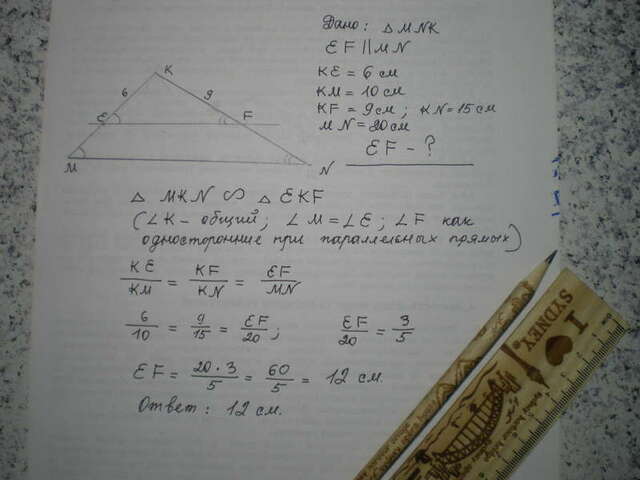 Дано: △ MNK
EF || MN
KE = 6 см
KM = 10 см
KF = 9 см; KN = 15 см
MN = 20 см
EF - ?
K
6
9
E
F
M
N
△ MKN ∽ △ EKF
(∠K - общий; ∠M = ∠E; ∠F как
односторонние при параллельных прямых)
KE/KM = KF/KN = EF/MN
6/10 = 9/15 = EF/20; EF/20 = 3/5
EF = 20·3/5 = 60/5 = 12 см.
Ответ: 12 см.
I ❤
SYDNEY